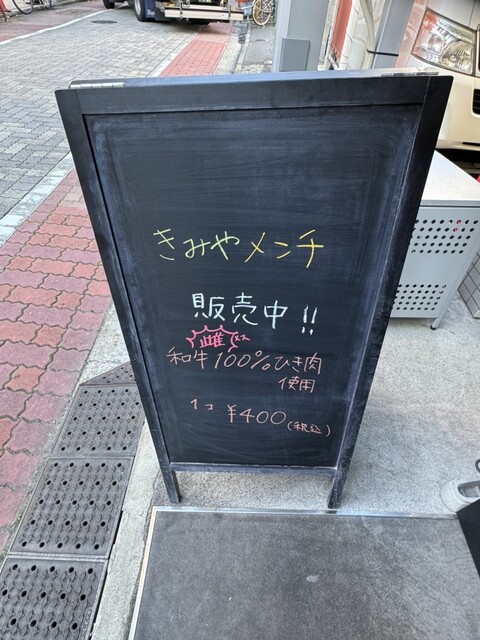 きみやメンチ
販売中!!
雌 メス
和牛100%ひき肉
使用
1コ ¥400(税込)